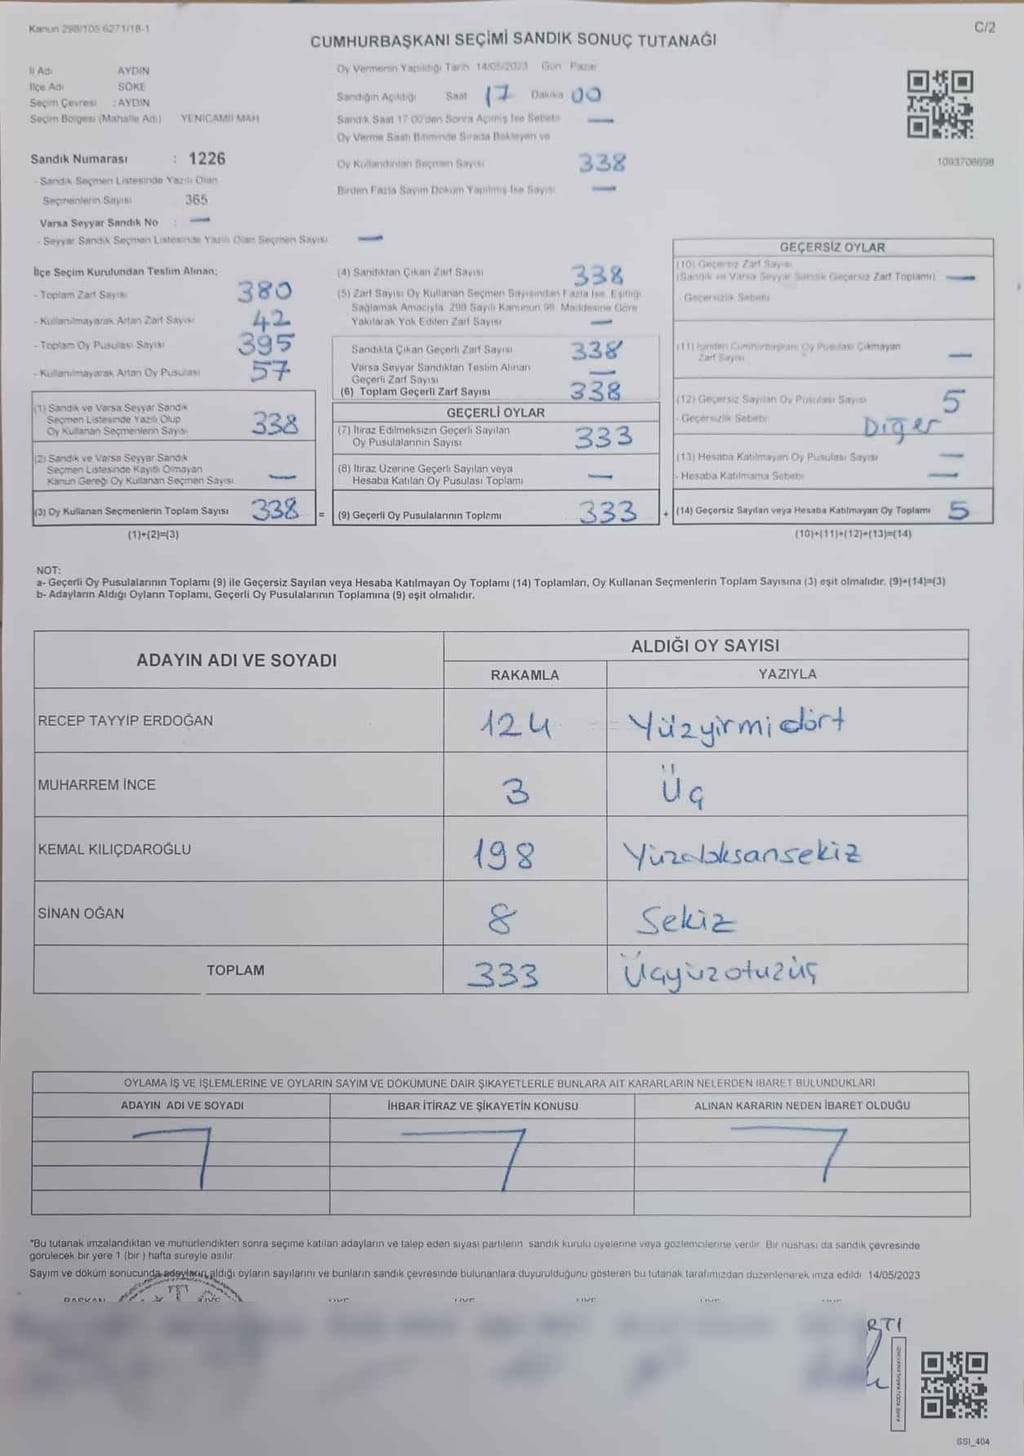 Kanun 298/105 6271/18-1
C/2
CUMHURBAŞKANI SEÇİMİ SANDIK SONUÇ TUTANAĞI
İl Adı AYDIN
İlçe Adı SÖKE
Seçim Çevresi : AYDIN
Seçim Bölgesi (Mahalle Adı) YENİCAMİİ MAH
Sandık Numarası : 1226
- Sandık Seçmen Listesinde Yazılı Olan
Seçmenlerin Sayısı 365
Varsa Seyyar Sandık No : —
- Seyyar Sandık Seçmen Listesinde Yazılı Olan Seçmen Sayısı —
Oy Vermenin Yapıldığı Tarih 14/05/2023 Gün Pazar
Sandığın Açıldığı Saat 17 Dakika 00
Sandık Saat 17.00'den Sonra Açılmış İse Sebebi —
Oy Verme Saati Bitiminde Sırada Bekleyen ve
Oy Kullandırılan Seçmen Sayısı 338
Birden Fazla Sayım Döküm Yapılmış İse Sayısı —
1093706698
İlçe Seçim Kurulundan Teslim Alınan:
- Toplam Zarf Sayısı 380
- Kullanılmayarak Artan Zarf Sayısı 42
- Toplam Oy Pusulası Sayısı 395
- Kullanılmayarak Artan Oy Pusulası 57
(1) Sandık ve Varsa Seyyar Sandık
Seçmen Listesinde Yazılı Olup
Oy Kullanan Seçmenlerin Sayısı 338
(2) Sandık ve Varsa Seyyar Sandık
Seçmen Listesinde Kayıtlı Olmayan
Kanun Gereği Oy Kullanan Seçmen Sayısı —
(3) Oy Kullanan Seçmenlerin Toplam Sayısı 338 =
(1)+(2)=(3)
(4) Sandıktan Çıkan Zarf Sayısı 338
(5) Zarf Sayısı Oy Kullanan Seçmen Sayısından Fazla İse, Eşitliği
Sağlamak Amacıyla, 298 Sayılı Kanunun 98. Maddesine Göre
Yakılarak Yok Edilen Zarf Sayısı —
Sandıkta Çıkan Geçerli Zarf Sayısı 338
Varsa Seyyar Sandıktan Teslim Alınan
Geçerli Zarf Sayısı —
(6) Toplam Geçerli Zarf Sayısı 338
GEÇERLİ OYLAR
(7) İtiraz Edilmeksizin Geçerli Sayılan
Oy Pusulalarının Sayısı 333
(8) İtiraz Üzerine Geçerli Sayılan veya
Hesaba Katılan Oy Pusulası Toplamı —
(9) Geçerli Oy Pusulalarının Toplamı 333 +
GEÇERSİZ OYLAR
(10) Geçersiz Zarf Sayısı
(Sandık ve Varsa Seyyar Sandık Geçersiz Zarf Toplamı) —
- Geçersizlik Sebebi
(11) İçinden Cumhurbaşkanı Oy Pusulası Çıkmayan
Zarf Sayısı —
(12) Geçersiz Sayılan Oy Pusulası Sayısı 5
- Geçersizlik Sebebi Diğer
(13) Hesaba Katılmayan Oy Pusulası Sayısı —
- Hesaba Katılmama Sebebi —
(14) Geçersiz Sayılan veya Hesaba Katılmayan Oy Toplamı 5
(10)+(11)+(12)+(13)=(14)
NOT:
a- Geçerli Oy Pusulalarının Toplamı (9) ile Geçersiz Sayılan veya Hesaba Katılmayan Oy Toplamı (14) Toplamları, Oy Kullanan Seçmenlerin Toplam Sayısına (3) eşit olmalıdır. (9)+(14)=(3)
b- Adayların Aldığı Oyların Toplamı, Geçerli Oy Pusulalarının Toplamına (9) eşit olmalıdır.
ADAYIN ADI VE SOYADI ALDIĞI OY SAYISI
RAKAMLA YAZIYLA
RECEP TAYYİP ERDOĞAN 124 Yüzyirmidört
MUHARREM İNCE 3 Üç
KEMAL KILIÇDAROĞLU 198 Yüzdoksansekiz
SİNAN OĞAN 8 Sekiz
TOPLAM 333 Üçyüzotuzüç
OYLAMA İŞ VE İŞLEMLERİNE VE OYLARIN SAYIM VE DÖKÜMÜNE DAİR ŞİKAYETLERLE BUNLARA AİT KARARLARIN NELERDEN İBARET BULUNDUKLARI
ADAYIN ADI VE SOYADI İHBAR İTİRAZ VE ŞİKAYETİN KONUSU ALINAN KARARIN NEDEN İBARET OLDUĞU
"Bu tutanak imzalandıktan ve mühürlendikten sonra seçime katılan adayların ve talep eden siyasi partilerin sandık kurulu üyelerine veya gözlemcilerine verilir. Bir nüshası da sandık çevresinde
görülecek bir yere 1 (bir) hafta süreyle asılır.
Sayım ve döküm sonucunda adayların aldığı oyların sayılarını ve bunların sandık çevresinde bulunanlara duyurulduğunu gösteren bu tutanak tarafımızdan düzenlenerek imza edildi. 14/05/2023
SSI_404